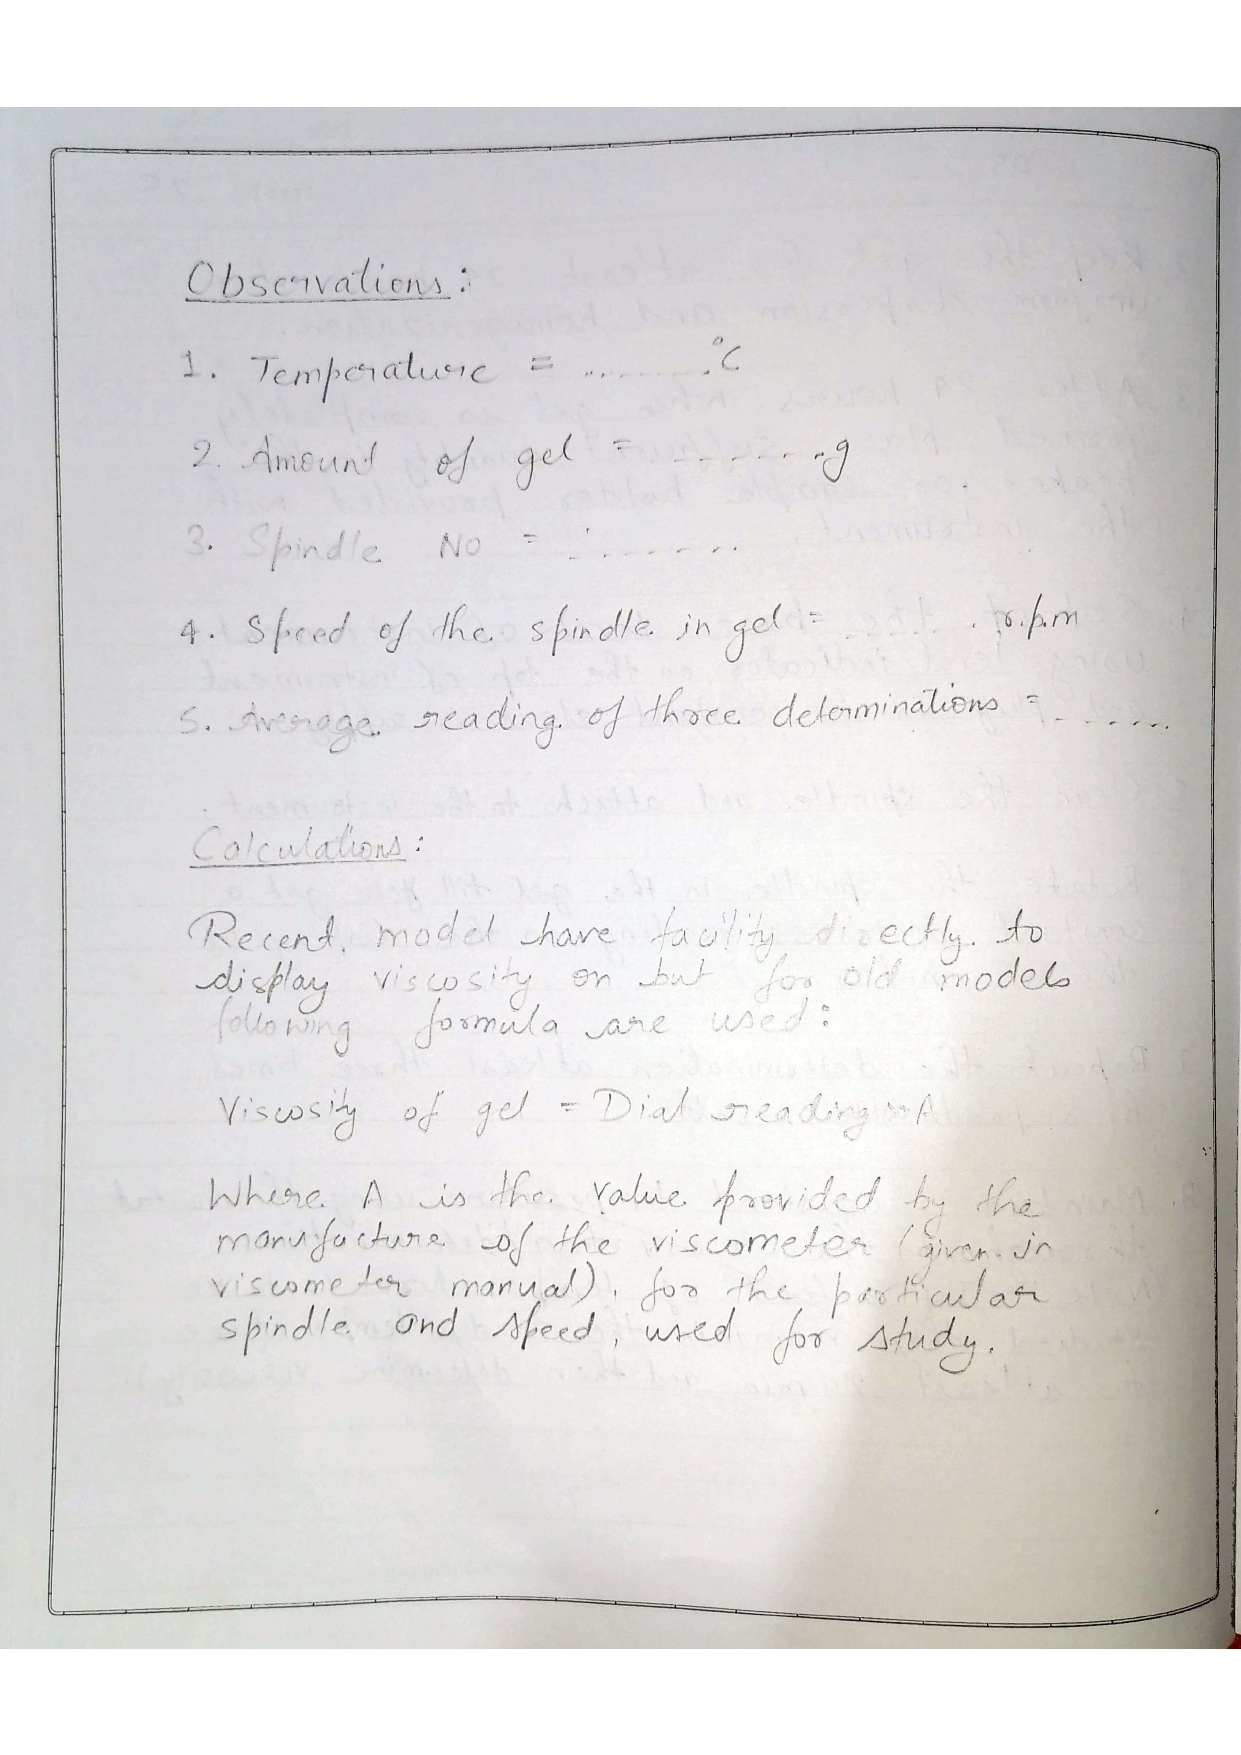 Observations:
1. Temperature = ........°C
2. Amount of gel = ........g
3. Spindle No = ........
4. Speed of the spindle in gel = ....... r.p.m
5. Average reading of three determinations = .......
Calculations:
Recent model have facility directly to
display viscosity on but for old models
following formula are used:
Viscosity of gel = Dial reading × A
Where A is the value provided by the
manufacture of the viscometer (given in
viscometer manual). for the particular
spindle and speed, used for study.